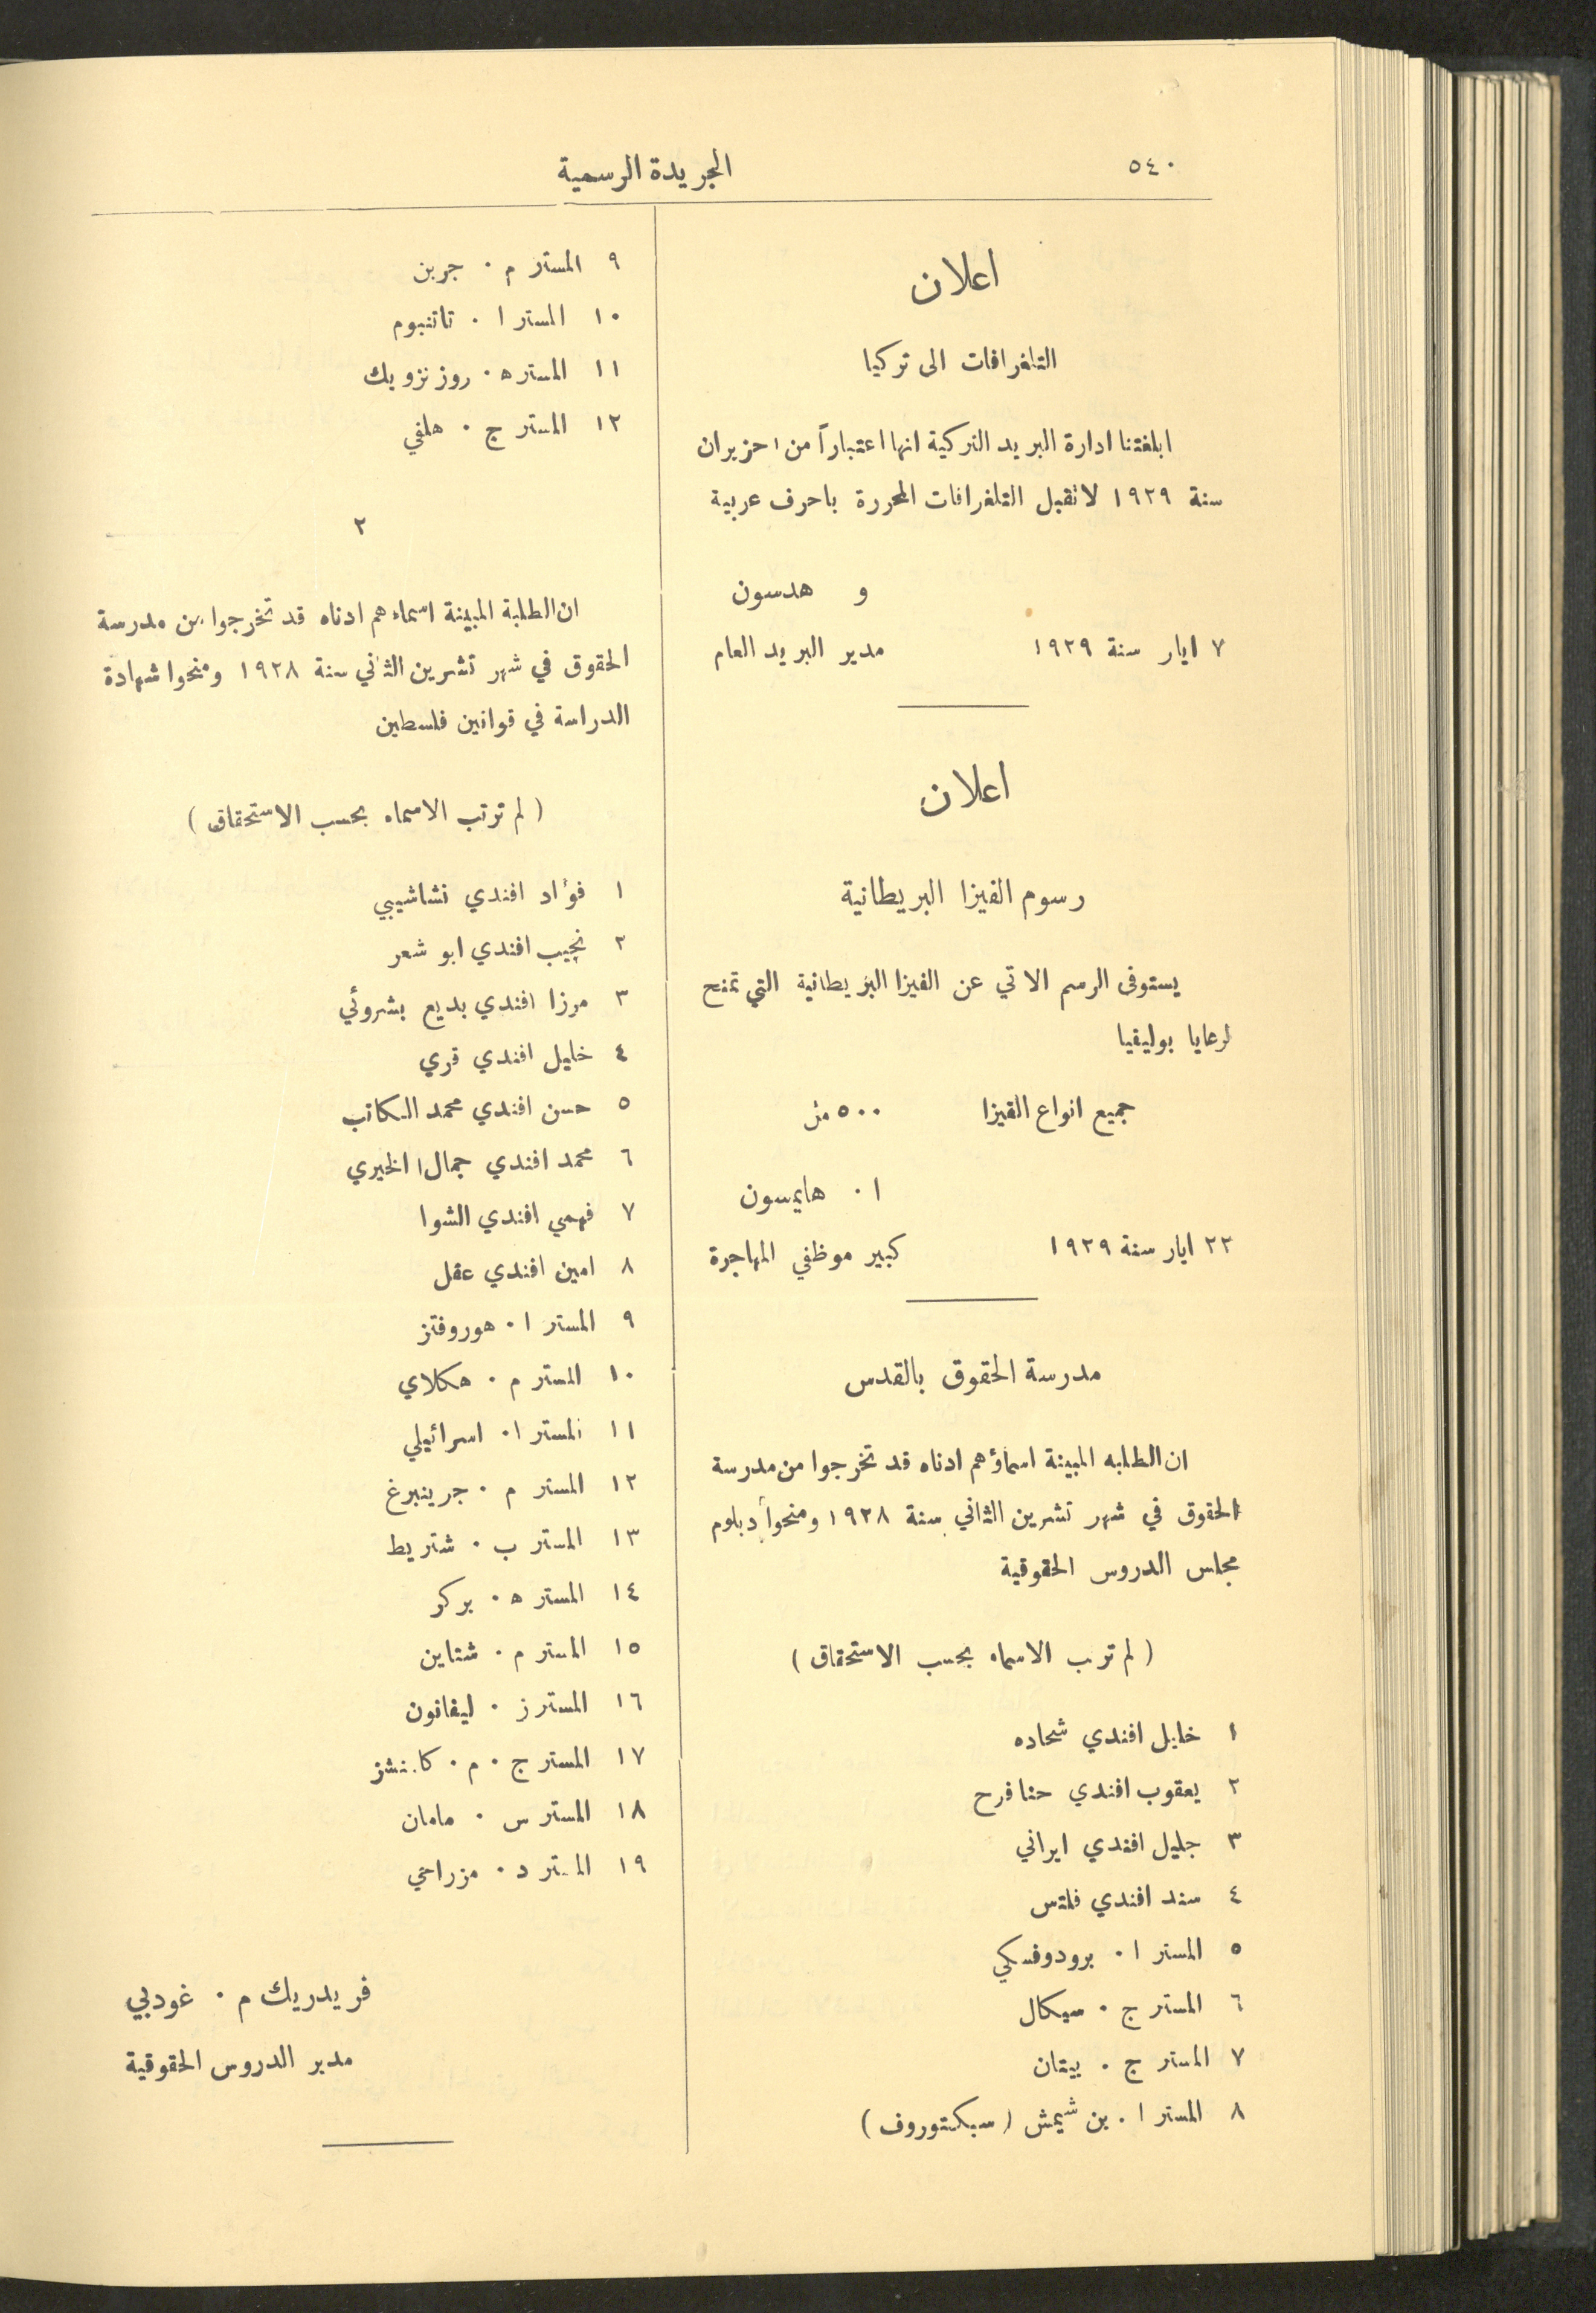 ٥٤٠
الجريدة الرسمية
اعلان
التلغرافات الى تركيا
ابلغتنا ادارة البريد التركية انها اعتباراً من ١ حزيران
سنة ١٩٢٩ لا تقبل التلغرافات المحررة باحرف عربية
و هدسون
٧ ايار سنة ١٩٢٩ مدير البريد العام
اعلان
رسوم الفيزا البريطانية
يستوفى الرسم الاتي عن الفيزا البريطانية التي تمنح
لرعايا بوليفيا
جميع انواع الفيزا ٥٠٠ مل
ا . هايمسون
٢٢ ايار سنة ١٩٢٩ كبير موظفي المهاجرة
مدرسة الحقوق بالقدس
ان الطلبه المبينة اسماؤهم ادناه قد تخرجوا من مدرسة
الحقوق في شهر تشرين الثاني سنة ١٩٢٨ ومنحوا دبلوم
مجلس الدروس الحقوقية
( لم ترتب الاسماء بحسب الاستحقاق )
١ خليل افندي شحاده
٢ يعقوب افندي حنا فرح
٣ جليل افندي ايراني
٤ سند افندي فلتس
٥ المستر ا . برودوفسكي
٦ المستر ج . سيكال
٧ المستر ج . بيتان
٨ المستر ا . بن شيمش ( سبكتوروف )
٩ المستر م . جرين
١٠ المستر ا . تاتنبوم
١١ المستر ه . روزنزويك
١٢ المستر ج . هلفي
٢
ان الطلبة المبينة اسماءهم ادناه قد تخرجوا من مدرسة
الحقوق في شهر تشرين الثاني سنة ١٩٢٨ ومنحوا شهادة
الدراسة في قوانين فلسطين
( لم ترتب الاسماء بحسب الاستحقاق )
١ فؤاد افندي نشاشيبي
٢ نجيب افندي ابو شعر
٣ مرزا افندي بديع بشروئي
٤ خليل افندي قري
٥ حسن افندي محمد الكاتب
٦ محمد افندي جمال الخيري
٧ فهمي افندي الشوا
٨ امين افندي عقل
٩ المستر ا . هوروفتز
١٠ المستر م . هكلاي
١١ المستر ا . اسرائيلي
١٢ المستر م . جرينبرغ
١٣ المستر ب . شتريط
١٤ المستر ه . بركر
١٥ المستر م . شتاين
١٦ المستر ز . ليفانون
١٧ المستر ج . م .
١٨ المستر س . مامان
١٩ المستر د . مزراحي
فريدريك م . غودبي
مدير الدروس الحقوقية